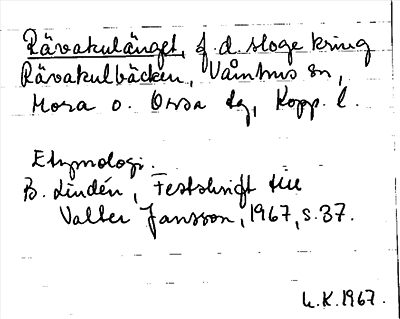 Rävakulänget, f.d. sloge kring
Rävakulbäcken, Våmhus sn,
Mora o. Orsa tg, Kopp. l.
Etymologi.
B. Lindén, Festskrift till
Valter Jansson, 1967, s. 37.
L.K. 1967.